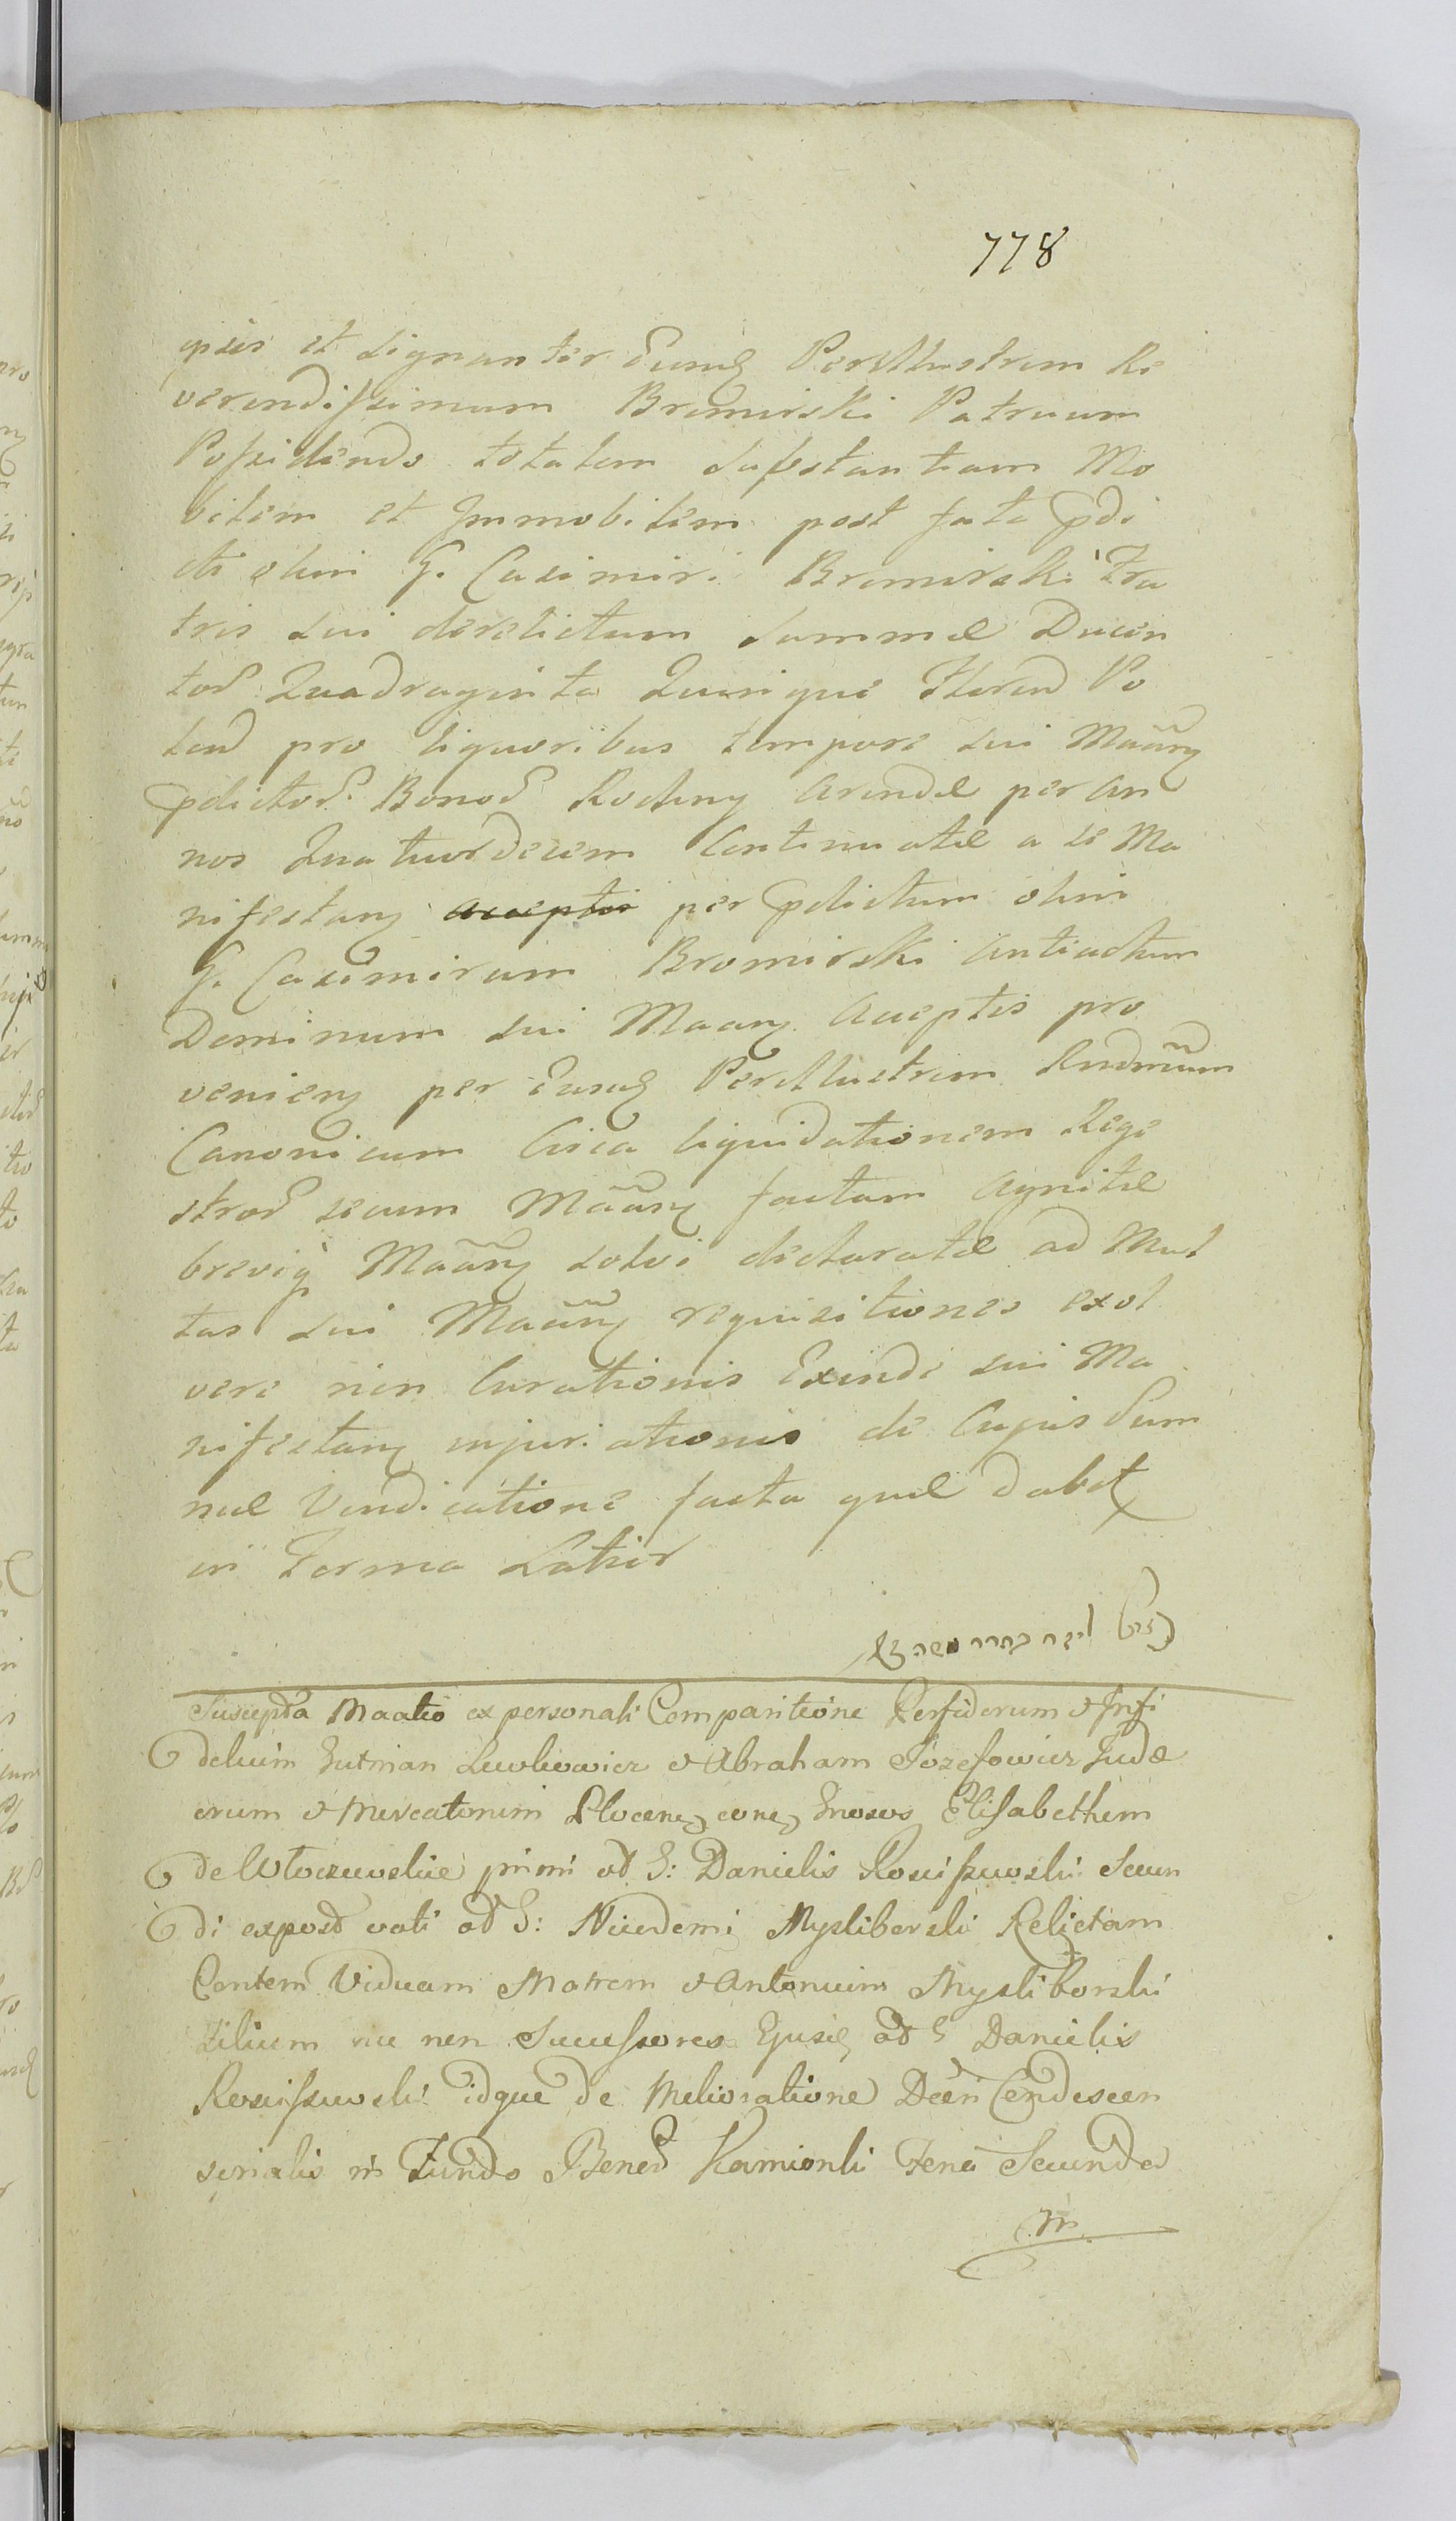 778
ipsis et signanter eund Perillustrem Re
verendissimum Bromirski Patruum
Possidendo totalem Substantiam Mo
bilem et Immobilem post fata pdi
cti olim G. Casimiri Bromirski Fra
tris sui derelictam Summæ Ducen
tor Quadraginta Quinque Floren Po
lon pro liquoribus tempore sui Maãn
pdictor Bonor Rociny Arendæ per An
nos Quatuordecem Continuatæ a se Ma
nifestan acceptis per pdictum olim
G. Casimirum Bromirski Antiactum
Dominum sui Maan Acceptis pro
venien per eund Perillustrem Rndmum
Canonicum Circa liquidationem Rege
stror secum Maãn factam Agnitæ
breviq Maãn solvi declaratæ ad Mul
tas sui Maãn requisitiones exol
vere non Curationis Exinde sui Ma
nifestan injuriationis de Cujus Sum
mæ Vendicatione facta quæ dabit
in Forma Latior
Suscepta Maatio ex personali Comparitione Perfidorum & Infi
delium Gutman Lewkowicz & Abraham Jozefowicz Judæ
orum & Mercatorum Plocen con Gnosos Elisabetham
de Wloczewskie primi ol G: Danielis Rosciszewski Secun
di expost voti ol G: Nicodemi Mysliborski Relictam
Contem Viduam Matrem & Antonium Mysliborski
Filium nec non Successores Ejusd ol G Danielis
Rosciszewski idque de Melioratione Decen Condescen
serialis in Fundo Bonor Kamionki Feria Secunda
m